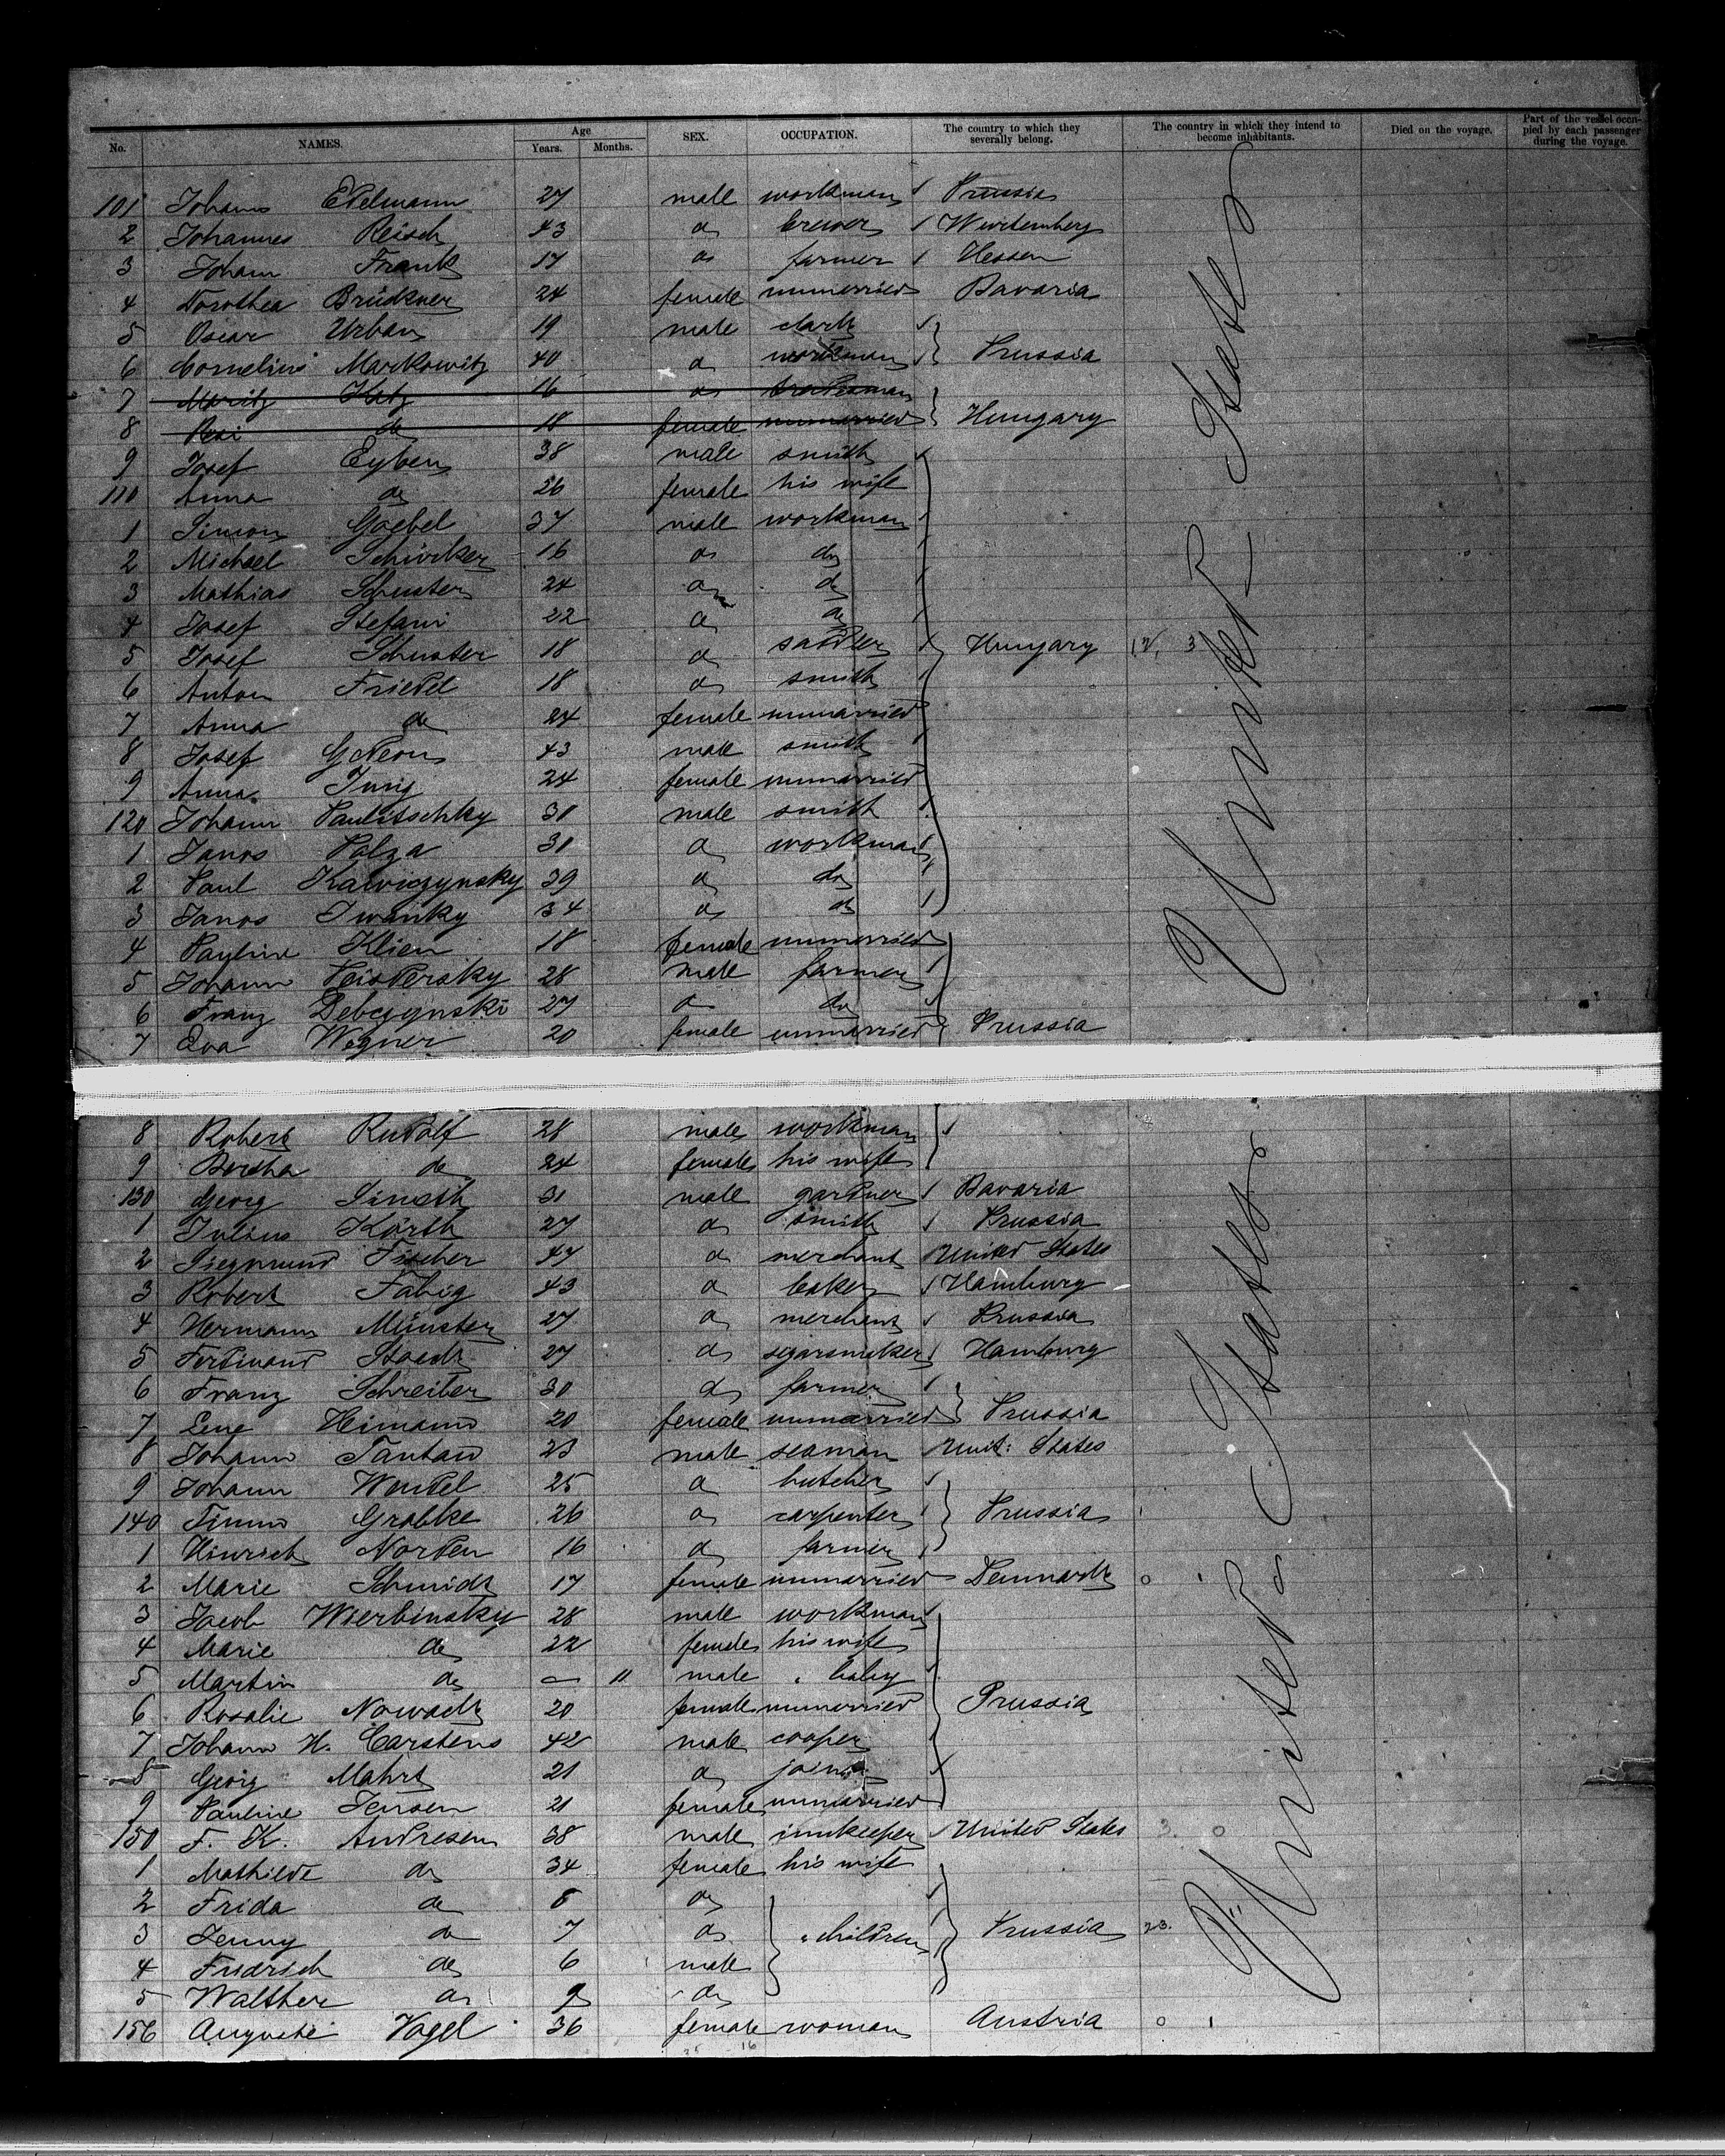 No. NAMES. Age Years. Months. SEX. OCCUPATION. The country to which they severally belong. The country in which they intend to become inhabitants. Died on the voyage. Part of the vessel occupied by each passenger during the voyage.
101 Johann Edelmann 27 male workman Prussia
2 Johannes Reisch 43 do brewer Wurtemberg
3 Johann Frank 17 do farmer Hessen
4 Dorothea Brückner 24 female unmarried Bavaria
5 Oscar Urban 19 male clark
6 Cornelius Markowitz 40 do workman Prussia
7 Moritz Katz 16 do tradesman
8 Resi do 18 female unmarried Hungary
9 Josef Eyben 38 male smith
110 Anna do 26 female his wife
1 Simon Goebel 37 male workman
2 Michael 16 do do
3 Mathias Schuster 24 do do
4 Josef Stefani 22 do do
5 Josef Schuster 18 do sadler Hungary
6 Anton Friedel 18 do smith
7 Anna do 24 female unmarried
8 Josef 43 male smith
9 Anna Jung 24 female unmarried
120 Johann Paulitschky 30 male smith
1 Janos Palza 30 do workman
2 Paul 39 do do
3 Janos Iwanky 34 do do
4 Pauline Klien 18 female unmarried
5 Johann 28 male farmer
6 Franz Debczynski 27 do do
7 Eva Wegner 20 female unmarried Prussia
8 Robert Rudolf 28 male workman
9 Bertha do 24 female his wife
130 Georg 31 male gardner Bavaria
1 Julius Korth 27 do smith Prussia
2 Siegmund Fischer 47 do merchant United States
3 Robert Fabig 43 do baker Hamburg
4 Hermann Münster 27 do merchant Prussia
5 Ferdinand Staedt 27 do segarsmaker Hamburg
6 Franz Schreiber 30 do farmer
7 Lene Heimann 20 female unmarried Prussia
8 Johann Tantau 23 male seaman Unit: States
9 Johann Wendel 25 do butcher
140 Timm Grabke 26 do carpenter Prussia
1 Hinrich Norden 16 do farmer
2 Marie Schmidt 17 female unmarried Denmark
3 Jacob Wierbinsky 28 male workman
4 Marie do 22 female his wife
5 Martin do — 11 male baby
6 Rosalie Nowack 20 female unmarried Prussia
7 Johann H. Carstens 42 male cooper
8 Georg Mahrt 21 do joiner
9 Pauline Jensen 21 female unmarried
150 F. K. Andresen 38 male innkeeper United States
1 Mathilde do 34 female his wife
2 Frida do 8 do
3 Jenny do 7 do children Prussia
4 Fridrich do 6 male
5 Walther do 9 do
156 Auguste Vogel 36 female woman Austria
United States
United States